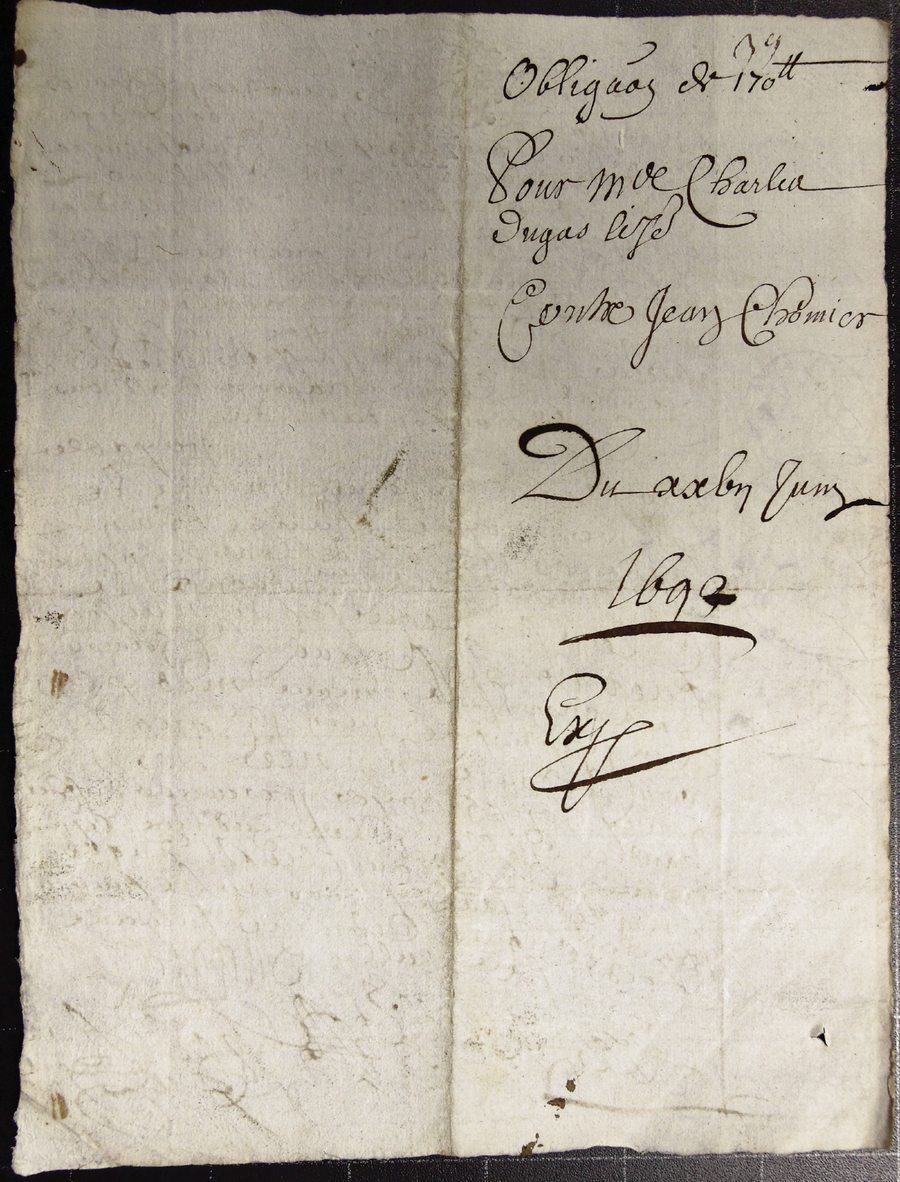 39
Obligãon de 170ᵗᵗ
Pour mᵈᵉ Charlea
dugas
Contre Jean Chomier
Du xxbɪȷ Juin
1692
Exp